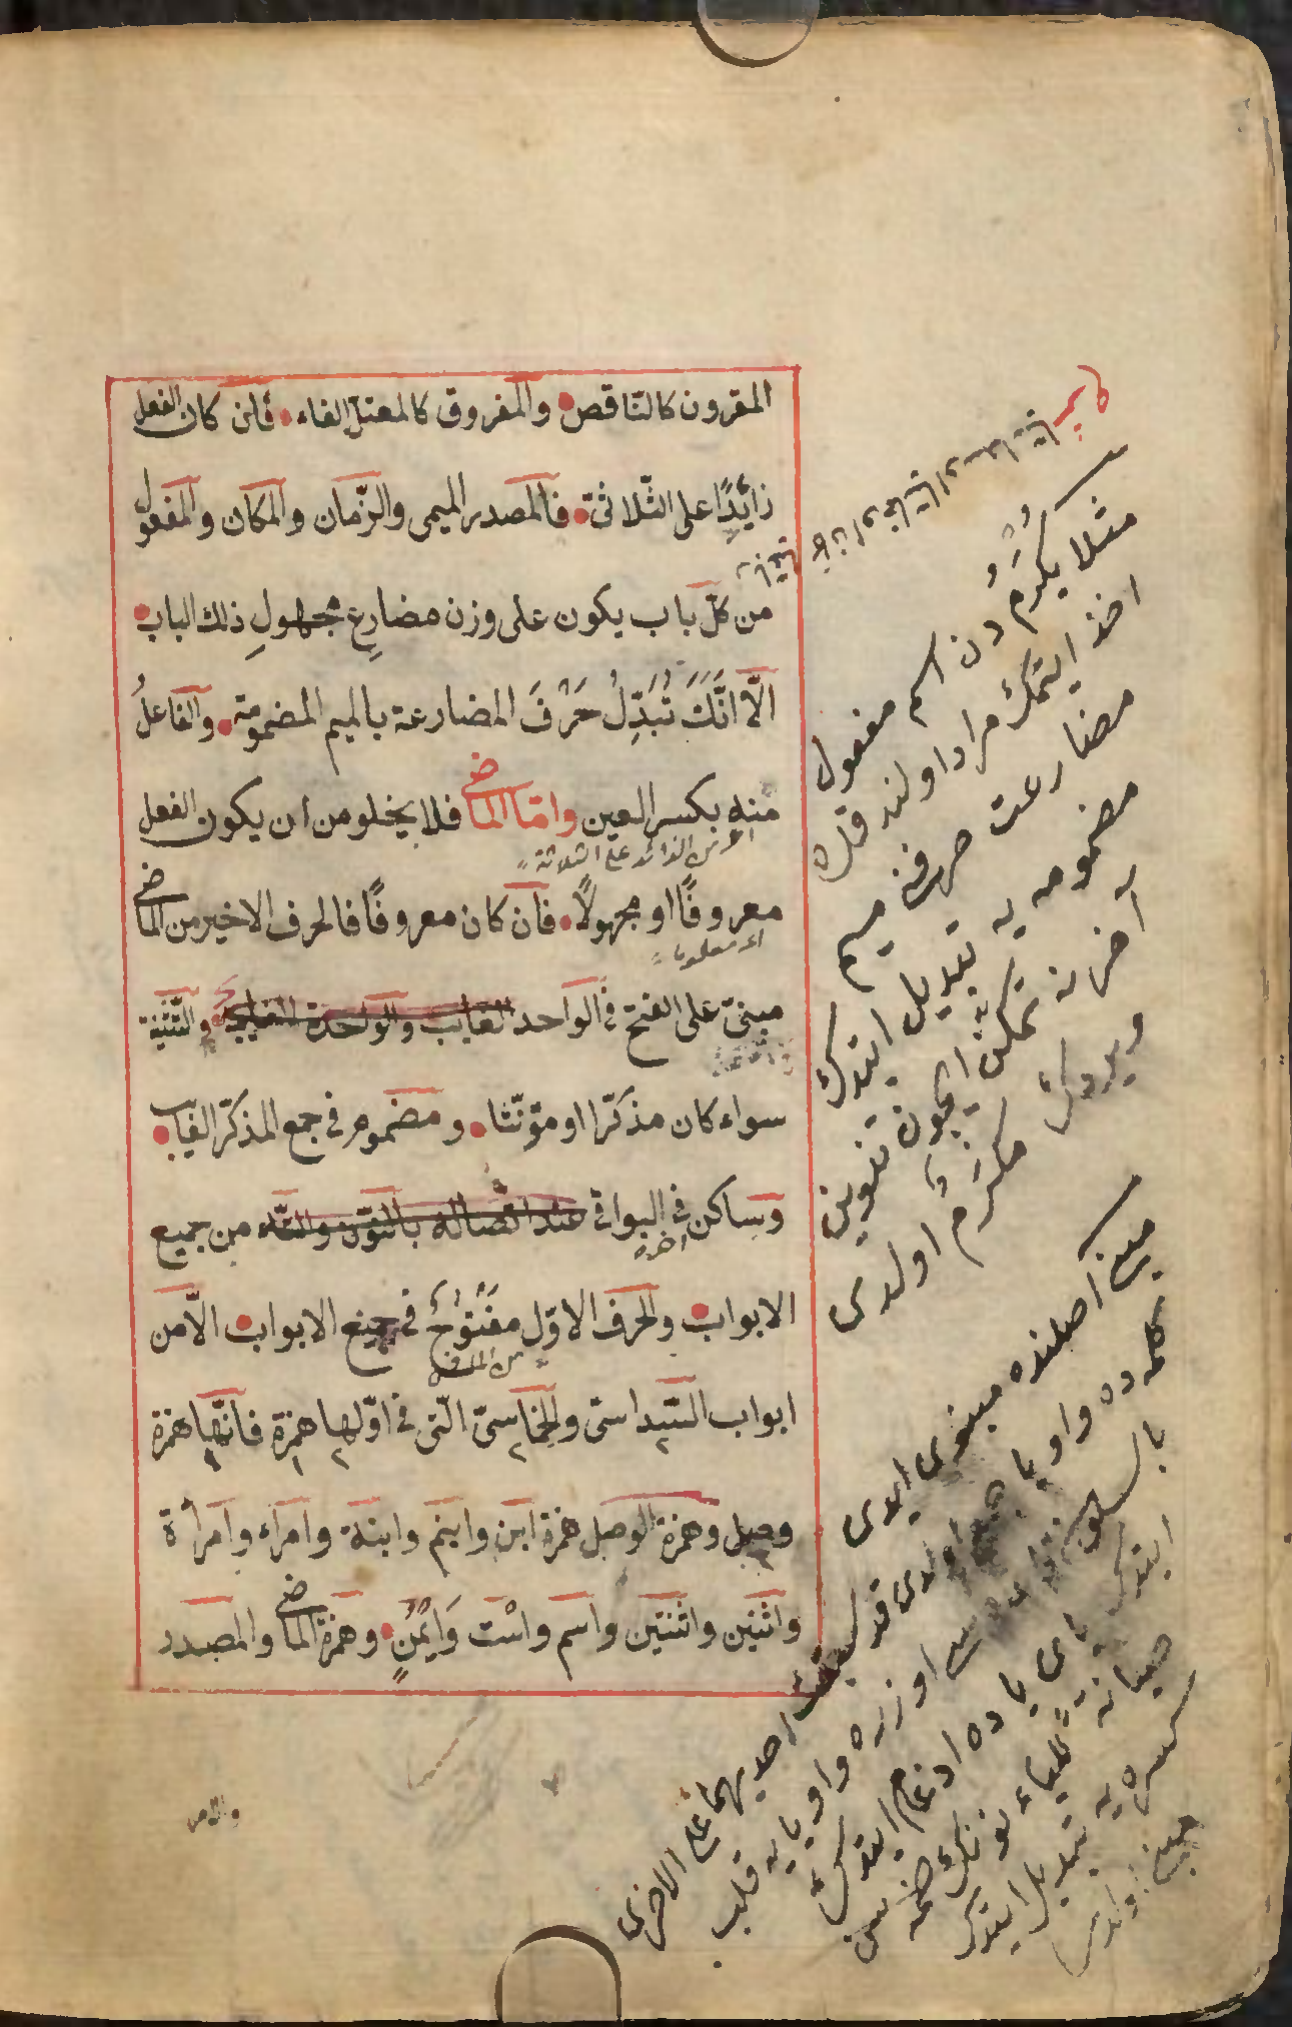 المقرون كالناقص والمفروق كالمعتل الفاء فان كان الفعل
زائدًا على الثلاثة فالمصدر الميمى والزّمان والمكان والمفعول
من كلّ باب يكون على وزن مضارعِ مجهولِ ذلك الباب
الّا انّكَ تُبَدِّلُ حَرْفَ المضارعة بالميم المضمومة والفاعلُ
منه بكسر العين وامّا الماضى فلا يخلو من ان يكون الفعل
من الزائد على الثلاثة
معروفًا او مجهولًا فان كان معروفًا فالحرف الاخير من الماضى
مبنىّ على الفتح فى الواحد الغايب والواحدة الغايبة والتثنية
سواء كان مذكّرا او مؤنّثا ومضموم فى جمع المذكّر الغايب
وساكن فى البواقى عند اتصاله بالنّون والتّاء من جميع
الابواب والحرف الاوّل مفتوحٌ فى جميع الابواب الّا من
ابواب السّداسىّ والخماسىّ الّتى فى اوّلها همزة فانّها همزة
وصل وهمزة الوصل همزة ابن وابنم وابنة وامراء وامرأة
واثنين واثنتين واسم واست وَايْمُنٍ وهمزة الماضى والمصدر
والامر
مثلا يُكْرَمُ دن اسم مفعول
اخذ ايتمك مراد اولندقده
مضارعت حرفنى ميم
مضمومه يه تبديل ايتدك
آخرنه تمكن ايچون تنوين
ويردك مكرَمٌ اولدى
مبنى اصلنده مبنوى ايدى
كلمه ده واو يا جمع اولدى قد سبقت احديهما على الاخرى
بالسكون اوزره واو يايه قلب
ايتدك ياى ياده ادغام ايتدك
صيانة للياء نونك ضمه سن
كسره يه تبديل ايتدك
مبنى اولدى